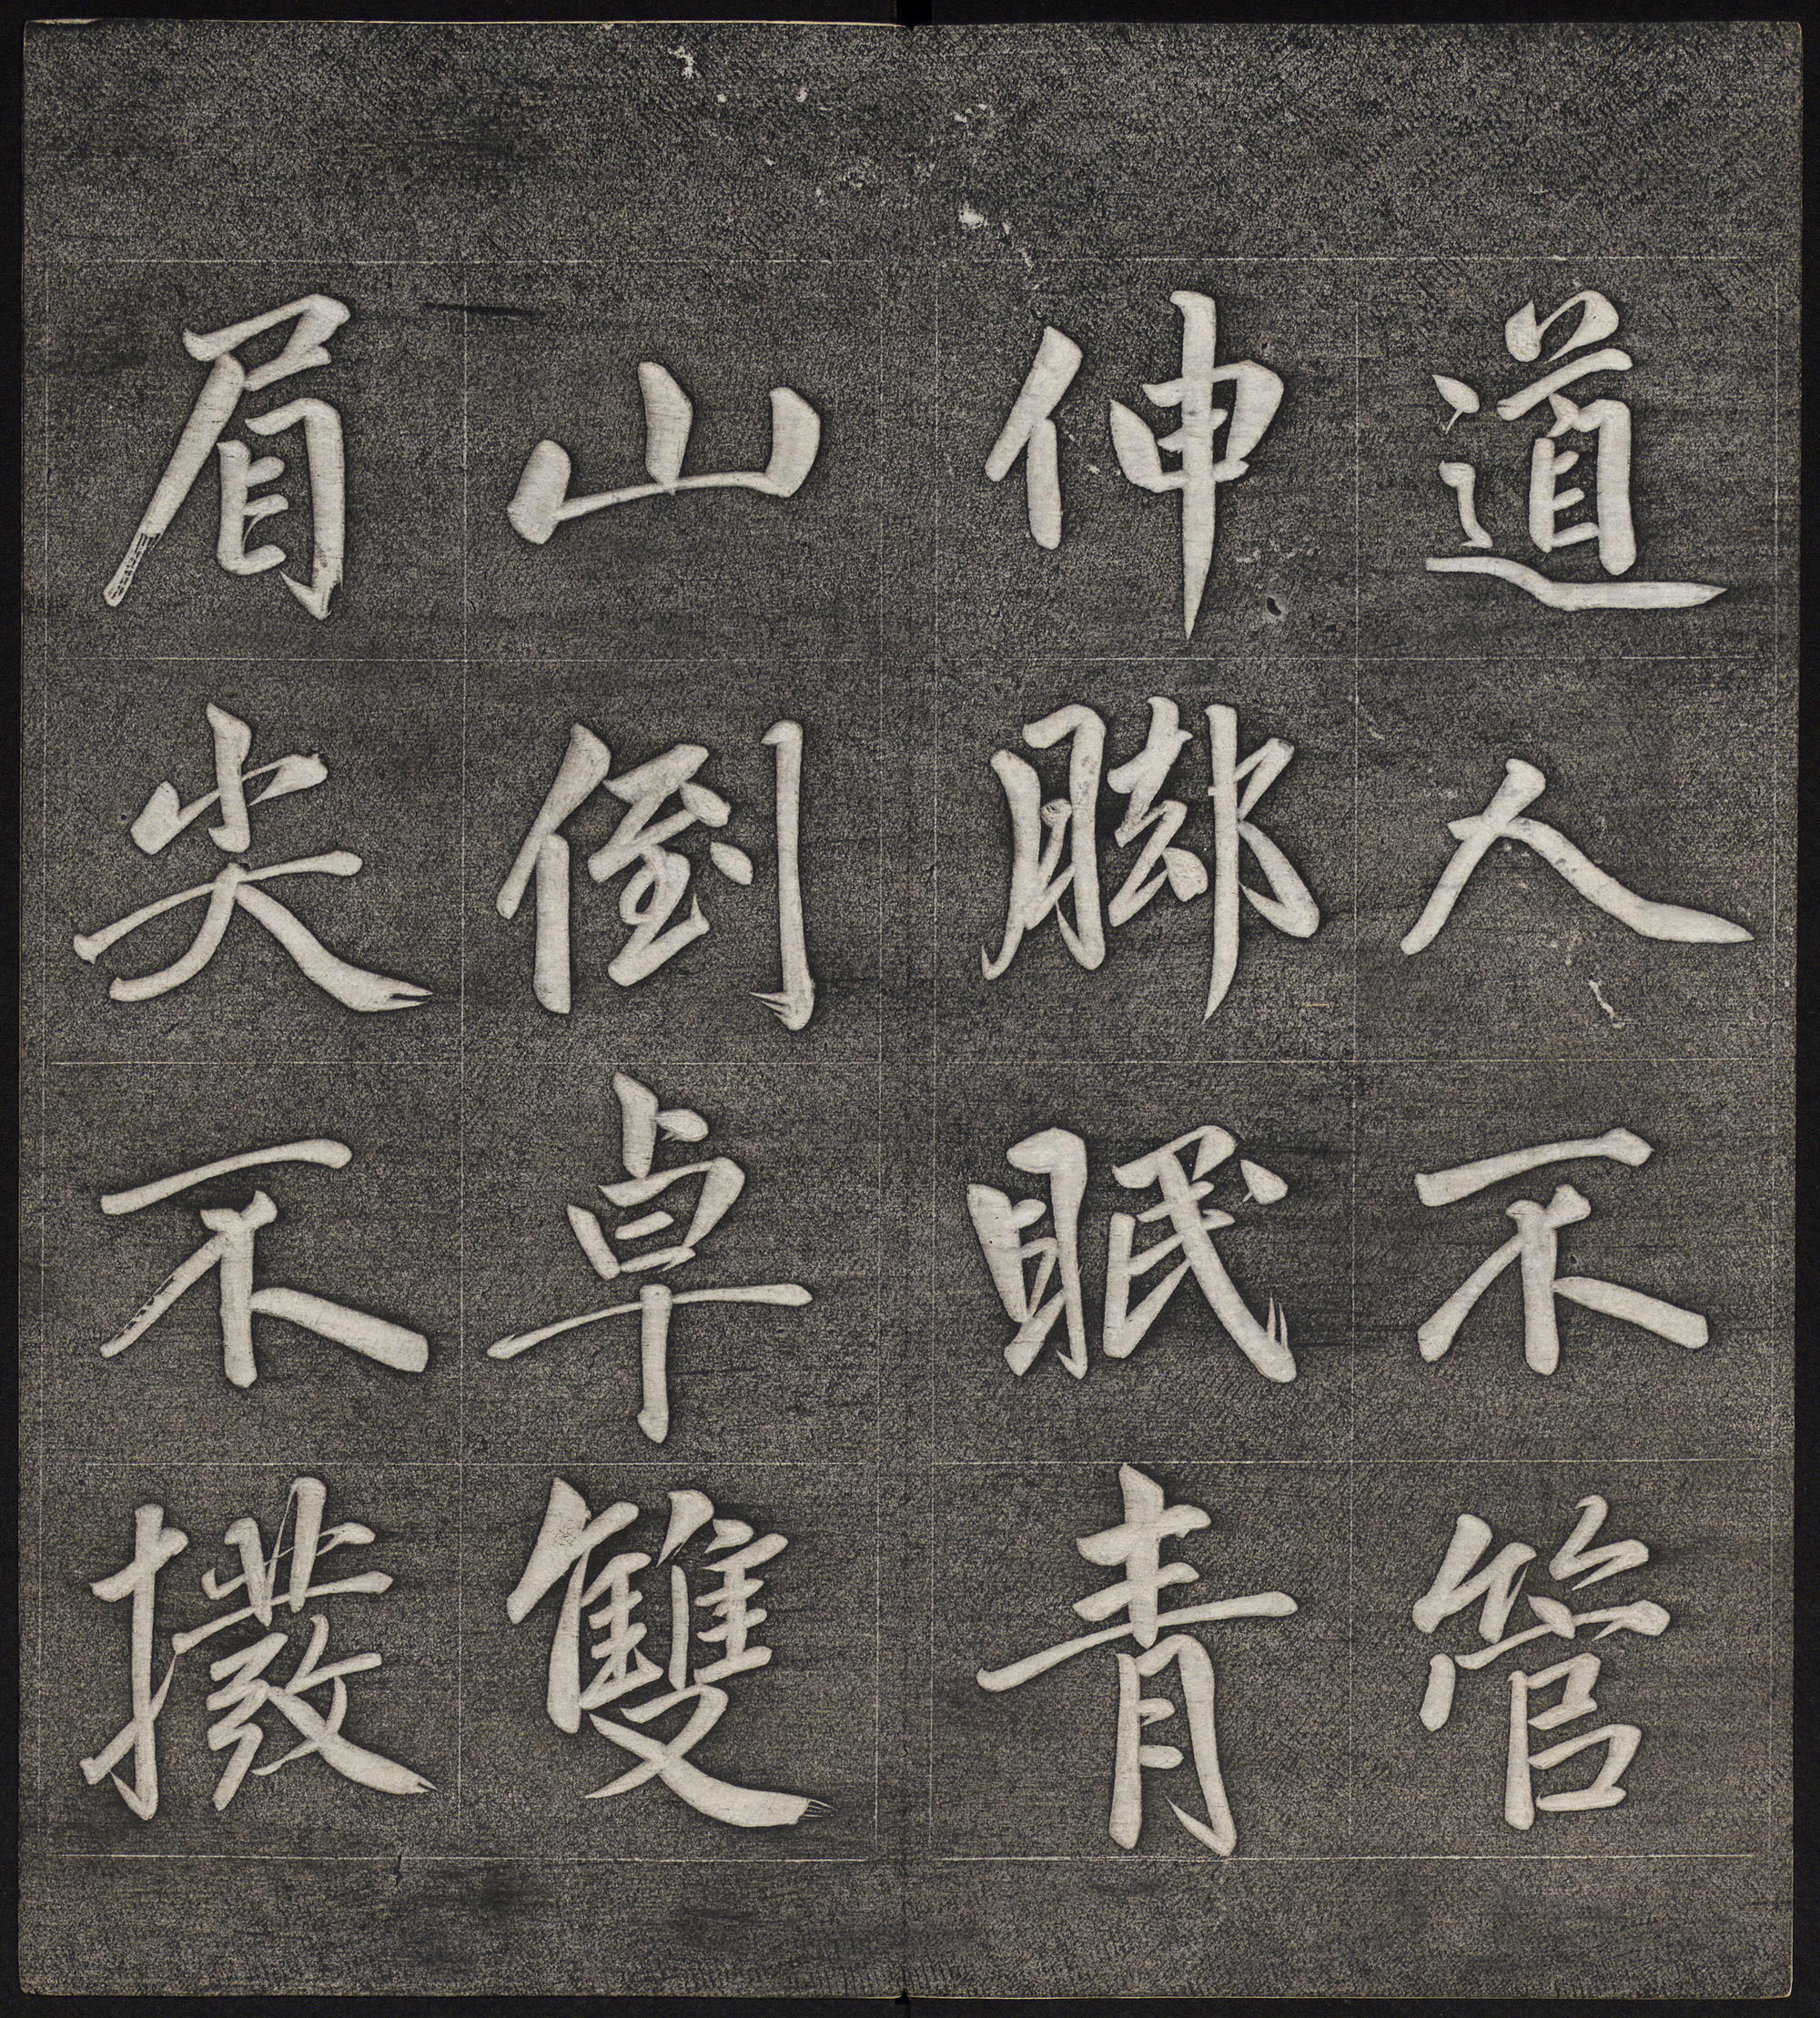 道人不管
伸脚眠青
山倒卓雙
眉尖不撥